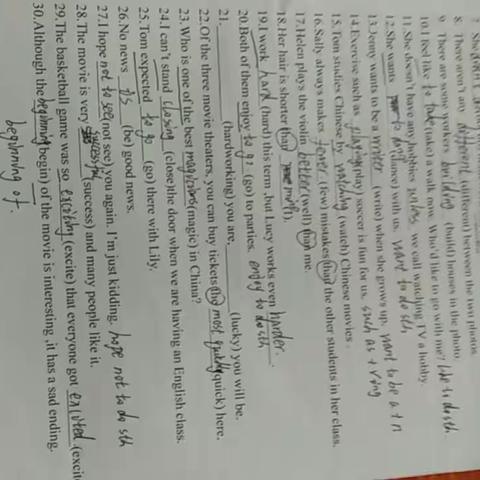 8. There aren't any different (different) between the two photos.
9. There are some workers building (build) houses in the photo.
10.I feel like to take (take) a walk now. Who'd like to go with me? like to do sth
11. She doesn't have any hobbies unless we call watching TV a hobby.
12.She wants to (dance) with us. want to do sth
13.Jenny wants to be a writer (write) when she grows up. want to be a + n
14.Exercise such as playing (play) soccer is fun for us. such as + Ving
15.Tom studies Chinese by watching (watch) Chinese movies.
16.Sally always makes fewer (few) mistakes than the other students in her class.
17.Helen plays the violin better (well) than me.
18.Her hair is shorter than
19.I work hard (hard) this term ,but Lucy works even harder.
20.Both of them enjoy to go (go) to parties. enjoy to do sth
21. (hardworking) you are, (lucky) you will be.
22.Of the three movie theaters, you can buy tickets the most quickly (quick) here.
23.Who is one of the best magicians (magic) in China?
24.I can't stand closing (close)the door when we are having an English class.
25.Tom expected to go (go) there with Lily.
26.No news is (be) good news.
27.I hope not to see (not see) you again. I'm just kidding. hope not to do sth
28.The movie is very successful (success) and many people like it.
29.The basketball game was so exciting (excite) that everyone got excited (excite
30.Although the beginning (begin) of the movie is interesting ,it has a sad ending.
beginning of.